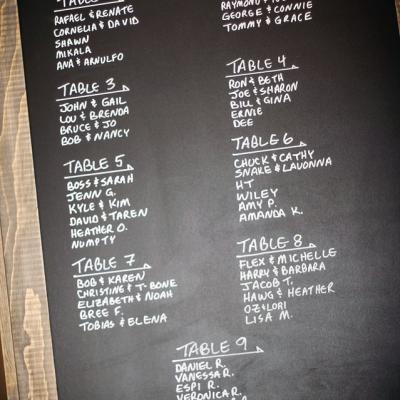 TABLE
RAFAEL & RENATE
CORNELIA & DAVID
SHAWN
MIKALA
ANA & ARNULFO
RAYMOND &
GEORGE & CONNIE
TOMMY & GRACE
TABLE 3
JOHN & GAIL
LOU & BRENDA
BRUCE & JO
BOB & NANCY
TABLE 4
RON & BETH
JOE & SHARON
BILL & GINA
ERNIE
DEE
TABLE 5
BOSS & SARAH
JENN G.
KYLE & KIM
DAVID & TAREN
HEATHER O.
NUMPTY
TABLE 6
CHUCK & CATHY
SNAKE & LAVONNA
HT
WILEY
AMY P.
AMANDA K.
TABLE 7
BOB & KAREN
CHRISTINE & T-BONE
ELIZABETH & NOAH
BREE F.
TOBIAS & ELENA
TABLE 8
FLEX & MICHELLE
HARRY & BARBARA
JACOB T.
HAWG & HEATHER
OZ & LORI
LISA M.
TABLE 9
DANIEL R.
VANESSA R.
ESPI R.
VERONICA R.